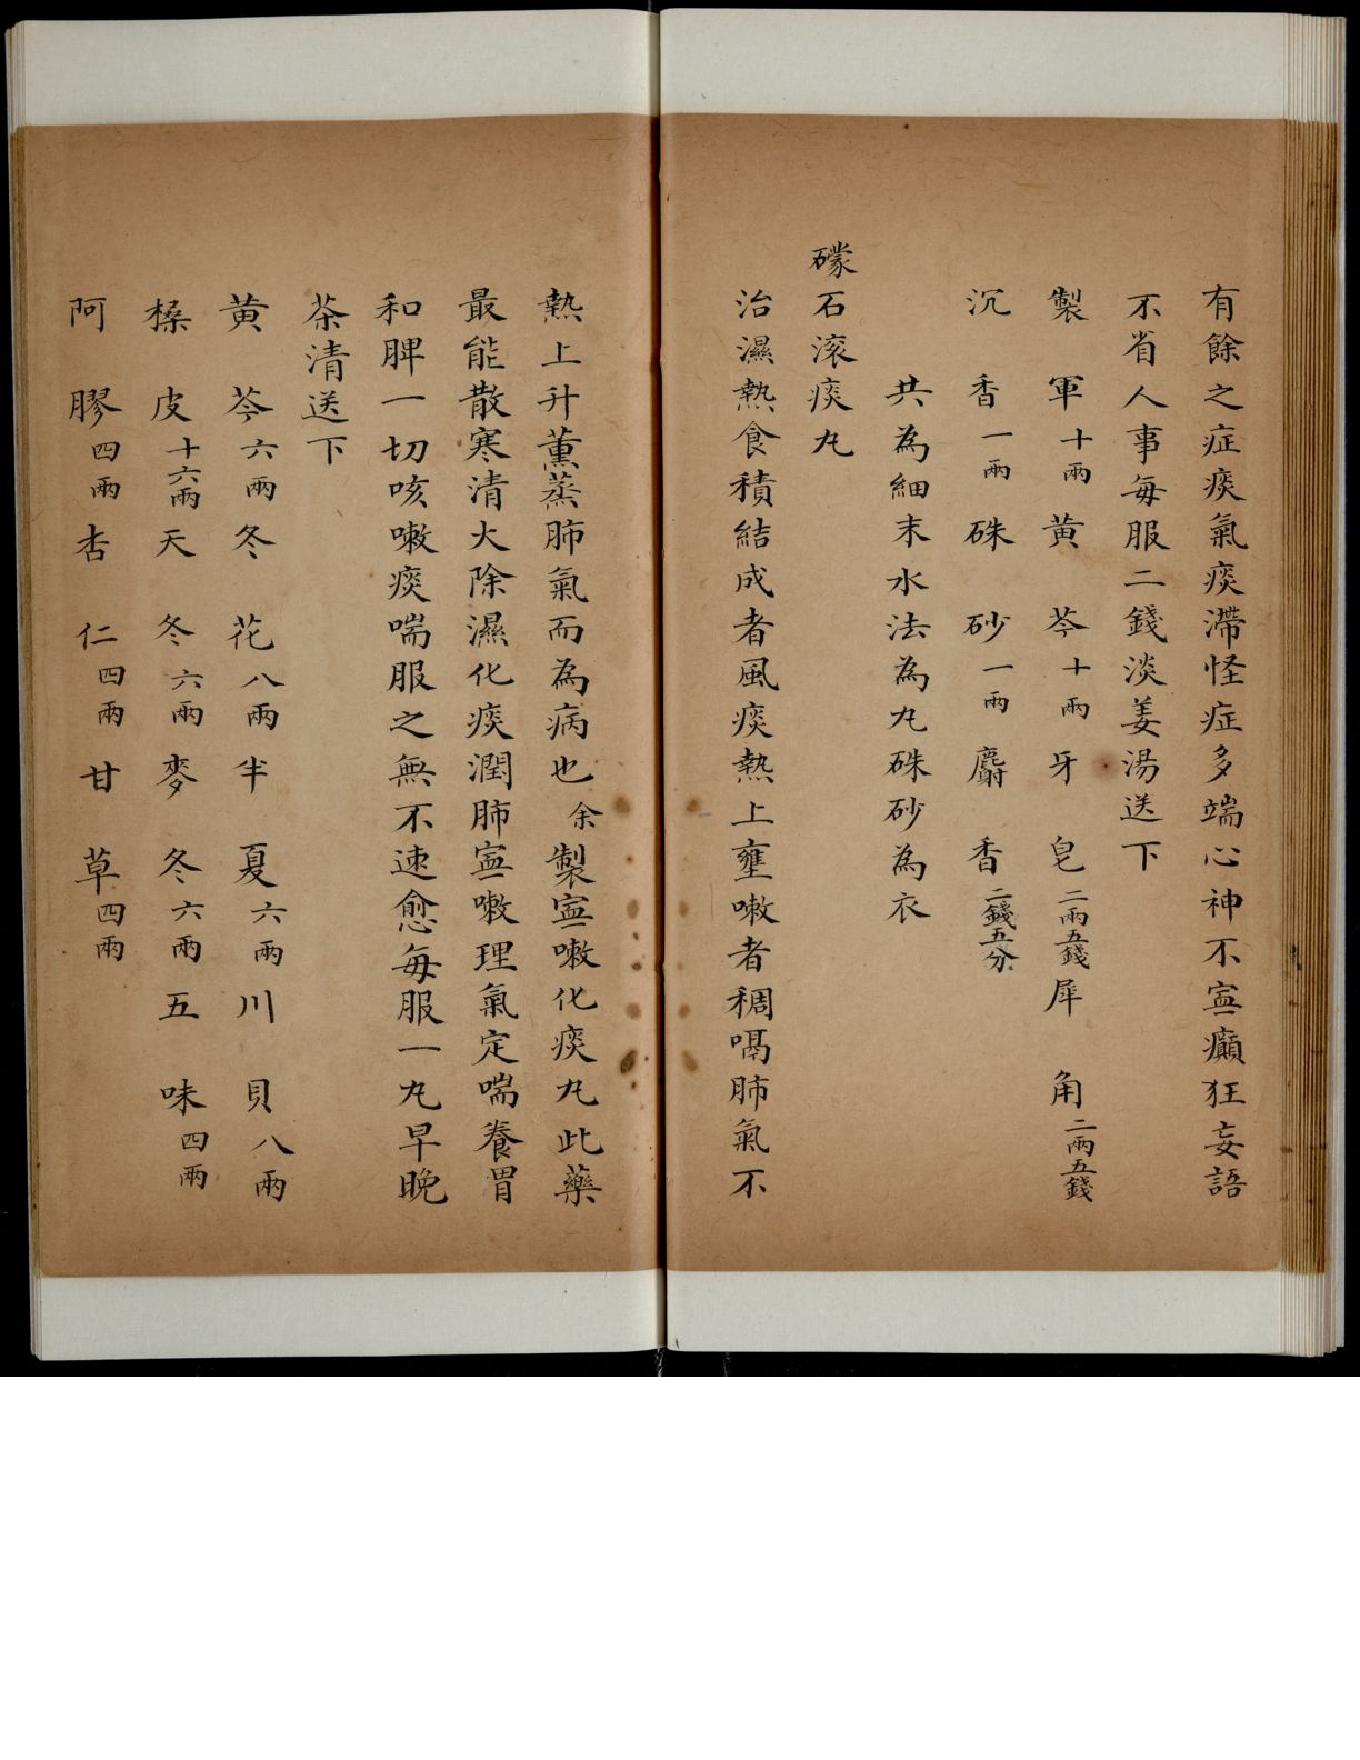 有餘之症痰氣痰滯怪症多端心神不寍癲狂妄語
不省人事每服二錢淡姜湯送下
製軍十兩黃芩十兩牙皂二兩五錢犀角二兩五錢
沉香一兩硃砂一兩麝香二錢五分
共為細末水法為丸硃砂為衣
礞石滚痰丸
治濕熱食積結成者風痰熱上壅嗽者稠喝肺氣不
熱上升薰蒸肺氣而為病也余製寍嗽化痰丸此藥
最能散寒清火除濕化痰潤肺寍嗽理氣定喘養胃
和脾一切咳嗽痰喘服之無不速愈每服一丸早晚
茶清送下
黃芩六兩冬花八兩半夏六兩川貝八兩
橾皮十六兩天冬六兩麥冬六兩五味四兩
阿膠四兩杏仁四兩甘草四兩